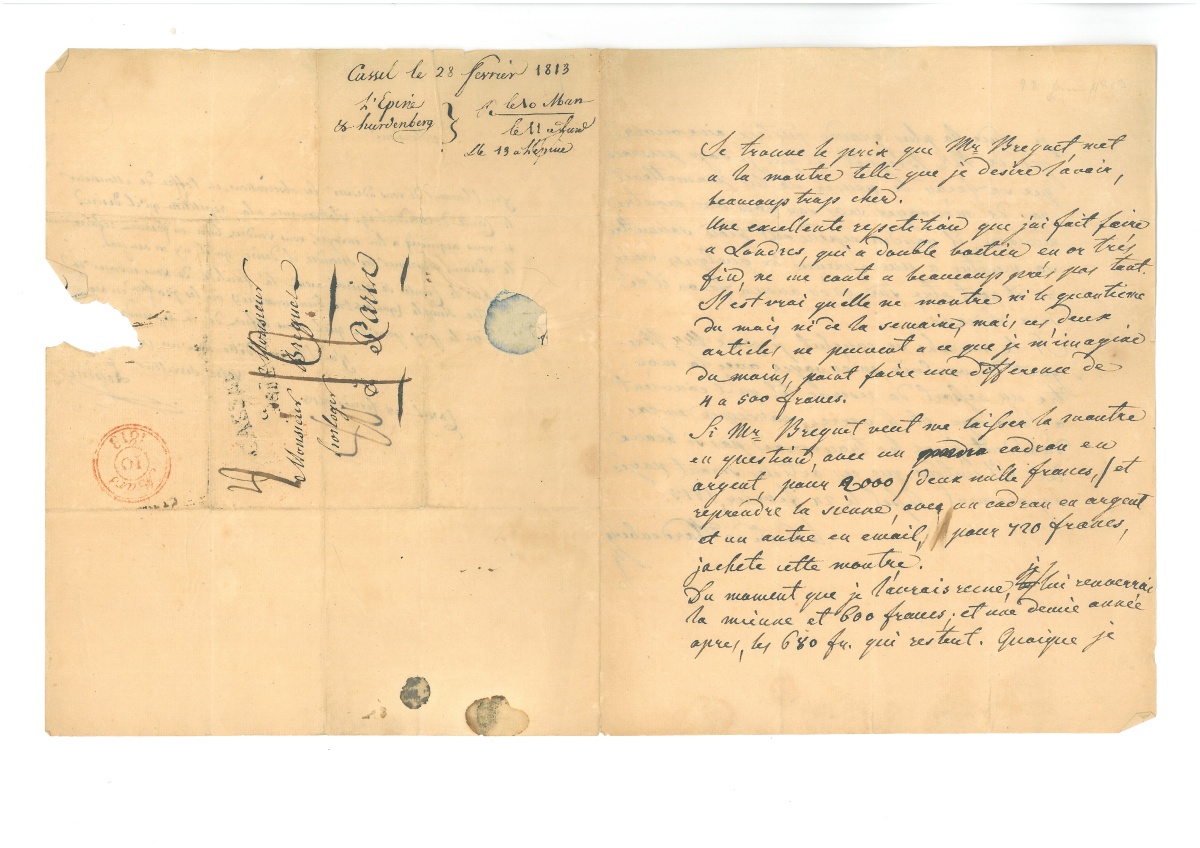 Cassel le 28 fevrier 1813
L'Epine
& hardenberg
le 10 Mars
le 11 a
le 13 a Lepine
a Monsieur
Monsieur Breguet
horloger
à Paris
CASSEL
MARS
10
1813
Je trouve le prix que Mr Breguet met
a la montre telle que je desire l'avoir,
beaucoup trop cher.
Une excellente repetition que j'ai fait faire
a Londres, qui a double boetier en or très
fin, ne me coute a beaucoup près pas tant.
Il est vrai qu'elle ne montre ni le quantieme
du mois ni de la semaine, mais ces deux
articles ne peuvent a ce que je m'imagine
du moins, point faire une difference de
4 a 500 francs.
Si Mr Breguet veut me laisser la montre
en question, avec un cadran en
argent, pour 2000 /deux mille francs,/ et
reprendre la sienne, avec un cadran en argent
et un autre en email, pour 720 francs,
j'achete cette montre.
Du moment que je l'aurais recue, je lui renverrai
la mienne et 600 francs; et une demie année
apres, les 680 fr. qui restent. Quoique je